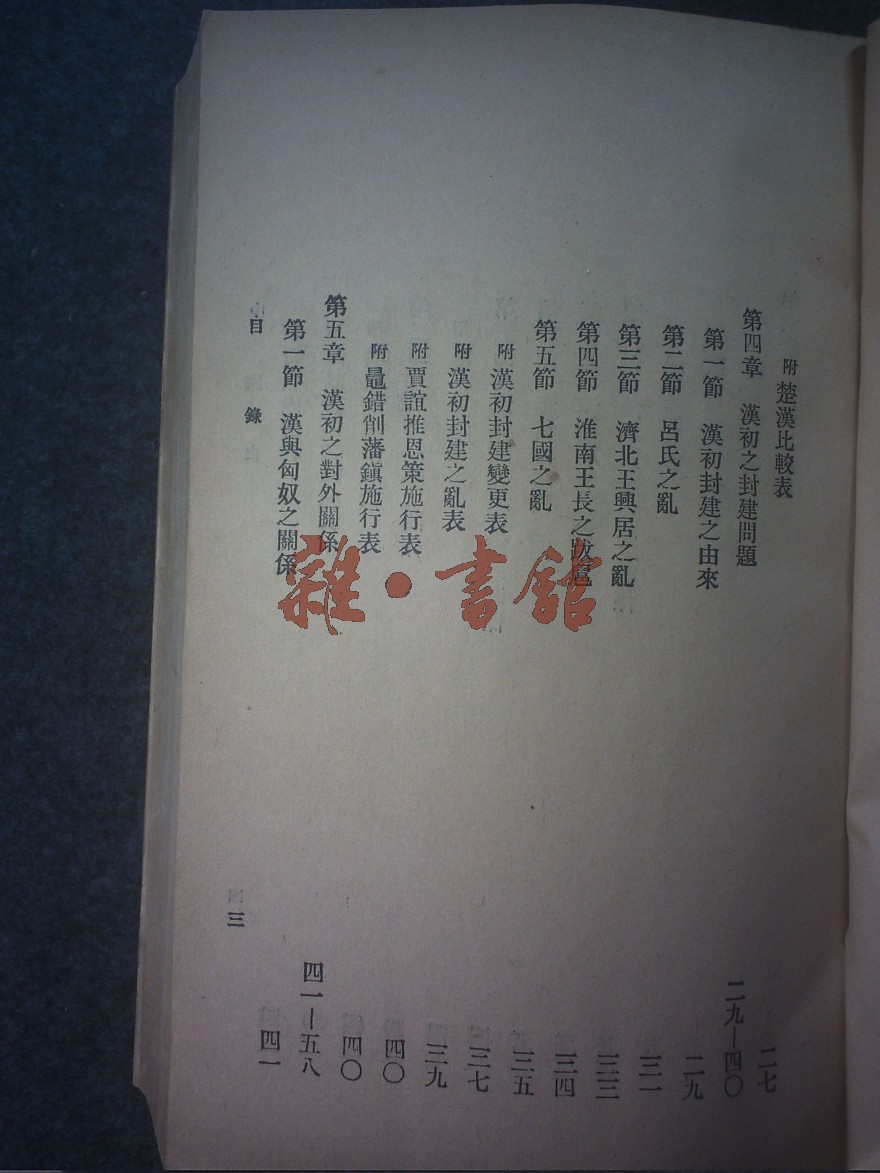 附 楚漢比較表 二七
第四章 漢初之封建問題 二九—四〇
第一節 漢初封建之由來 二九
第二節 呂氏之亂 三一
第三節 濟北王興居之亂 三三
第四節 淮南王長之跋扈 三四
第五節 七國之亂 三五
附 漢初封建變更表 三七
附 漢初封建之亂表 三九
附 賈誼推恩策施行表 四〇
附 鼂錯削藩鎭施行表 四〇
第五章 漢初之對外關係 四一—五八
第一節 漢與匈奴之關係 四一
目錄 三
雜·書館